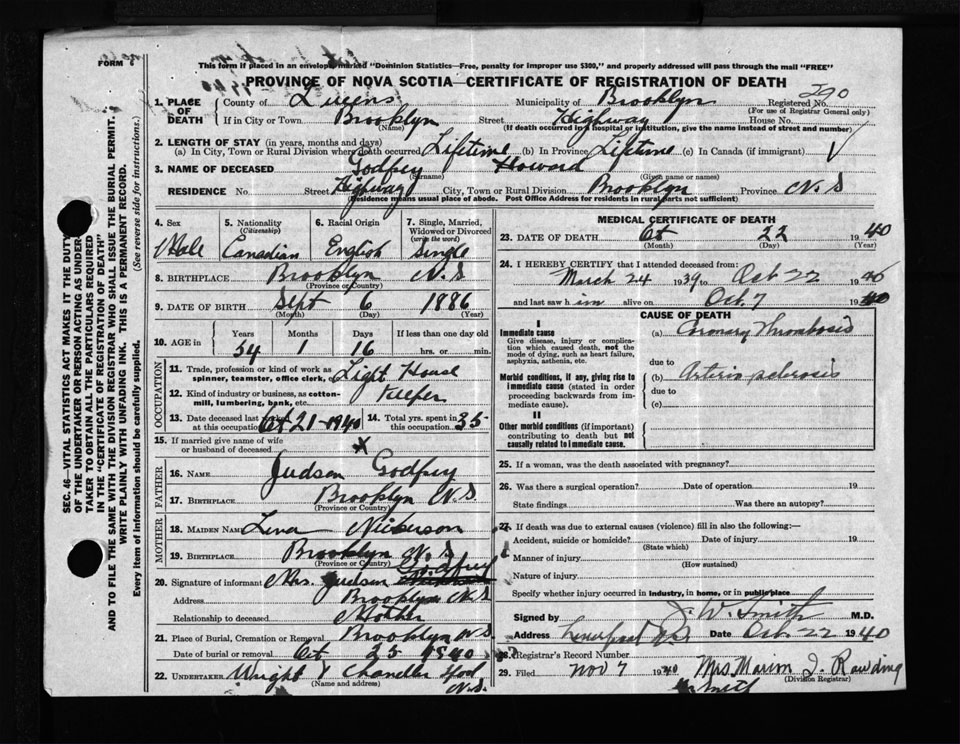 FORM 6
This form if placed in an envelope marked "Dominion Statistics—Free, penalty for improper use $300," and properly addressed will pass through the mail "FREE"
PROVINCE OF NOVA SCOTIA—CERTIFICATE OF REGISTRATION OF DEATH
1. PLACE OF DEATH County of Queens Municipality of Brooklyn Registered No. 290
(For use of Registrar General only)
If in City or Town Brooklyn Street Highway House No.
(Name) (If death occurred in hospital or institution, give the name instead of street and number)
2. LENGTH OF STAY (in years, months and days)
(a) In City, Town or Rural Division where death occurred Lifetime (b) In Province Lifetime (c) In Canada (if immigrant)
3. NAME OF DECEASED Godfrey Howard
(Surname) (Given name or names)
RESIDENCE No. Street Highway City, Town or Rural Division Brooklyn Province N.S
(Residence means usual place of abode. Post Office Address for residents in rural parts not sufficient)
4. Sex 5. Nationality (Citizenship) 6. Racial Origin 7. Single, Married, Widowed or Divorced (write the word)
Male Canadian English Single
8. BIRTHPLACE Brooklyn N.S
(Province or Country)
9. DATE OF BIRTH Sept 6 1886
(Month) (Day) (Year)
10. AGE in Years Months Days If less than one day old
54 1 16 hrs. or min.
OCCUPATION
11. Trade, profession or kind of work as spinner, teamster, office clerk, etc. Light House
12. Kind of industry or business, as cotton-mill, lumbering, bank, etc. Keeper
13. Date deceased last worked at this occupation Oct 21-1940 14. Total yrs. spent in this occupation 35
15. If married give name of wife or husband of deceased X
FATHER
16. NAME Judson Godfrey
17. BIRTHPLACE Brooklyn N.S
(Province or Country)
MOTHER
18. MAIDEN NAME Lena Nickerson
19. BIRTHPLACE Brooklyn N.S
(Province or Country)
20. Signature of informant Mrs. Judson Godfrey
Address Brooklyn N.S
Relationship to deceased Mother
21. Place of Burial, Cremation or Removal Brooklyn N.S
Date of burial or removal Oct 25 1940
22. UNDERTAKER Wright & Chandler
N.S.
(Name and address)
MEDICAL CERTIFICATE OF DEATH
23. DATE OF DEATH Oct 22 1940
(Month) (Day) (Year)
24. I HEREBY CERTIFY that I attended deceased from:
March 24 1939 to Oct 22 1940
and last saw him alive on Oct. 7 1940
CAUSE OF DEATH
I
Immediate cause (a) Coronary Thrombosis
Give disease, injury or complication which caused death, not the mode of dying, such as heart failure, asphyxia, asthenia, etc.
due to
Morbid conditions, if any, giving rise to immediate cause (stated in order proceeding backwards from immediate cause). (b) Arterio sclerosis
due to
(c)
II
Other morbid conditions (if important) contributing to death but not causally related to immediate cause.
25. If a woman, was the death associated with pregnancy?
26. Was there a surgical operation? Date of operation 19
State findings Was there an autopsy?
27. If death was due to external causes (violence) fill in also the following:—
Accident, suicide or homicide? Date of injury 19
(State which)
Manner of injury
(How sustained)
Nature of injury
Specify whether injury occurred in industry, in home, or in public place
Signed by J. W. Smith M.D.
Address Liverpool N.S. Date Oct. 22 1940
28. Registrar's Record Number
29. Filed Nov 7 1940 Mrs Marion J. Rawding
(Division Registrar)
SEC. 46—VITAL STATISTICS ACT MAKES IT THE DUTY
OF THE UNDERTAKER OR PERSON ACTING AS UNDER-
TAKER TO OBTAIN ALL THE PARTICULARS REQUIRED
IN THE "CERTIFICATE OF REGISTRATION OF DEATH"
AND TO FILE THE SAME WITH THE DIVISION REGISTRAR WHO SHALL ISSUE THE BURIAL PERMIT.
WRITE PLAINLY WITH UNFADING INK. THIS IS A PERMANENT RECORD.
Every item of information should be carefully supplied. (See reverse side for instructions.)